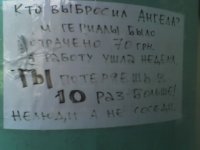 КТО ВЫБРОСИЛ АНГЕЛА?
М ТЕРИАЛЫ БЫЛО
ПОТРАЧЕНО 70 ГРН.
А РАБОТУ УШЛА НЕДЕЛЯ
ТЫ ПОТЕРЯЕШЬ В
10 РАЗ БОЛЬШЕ!
НЕЛЮДИ А НЕ СОСЕДИ